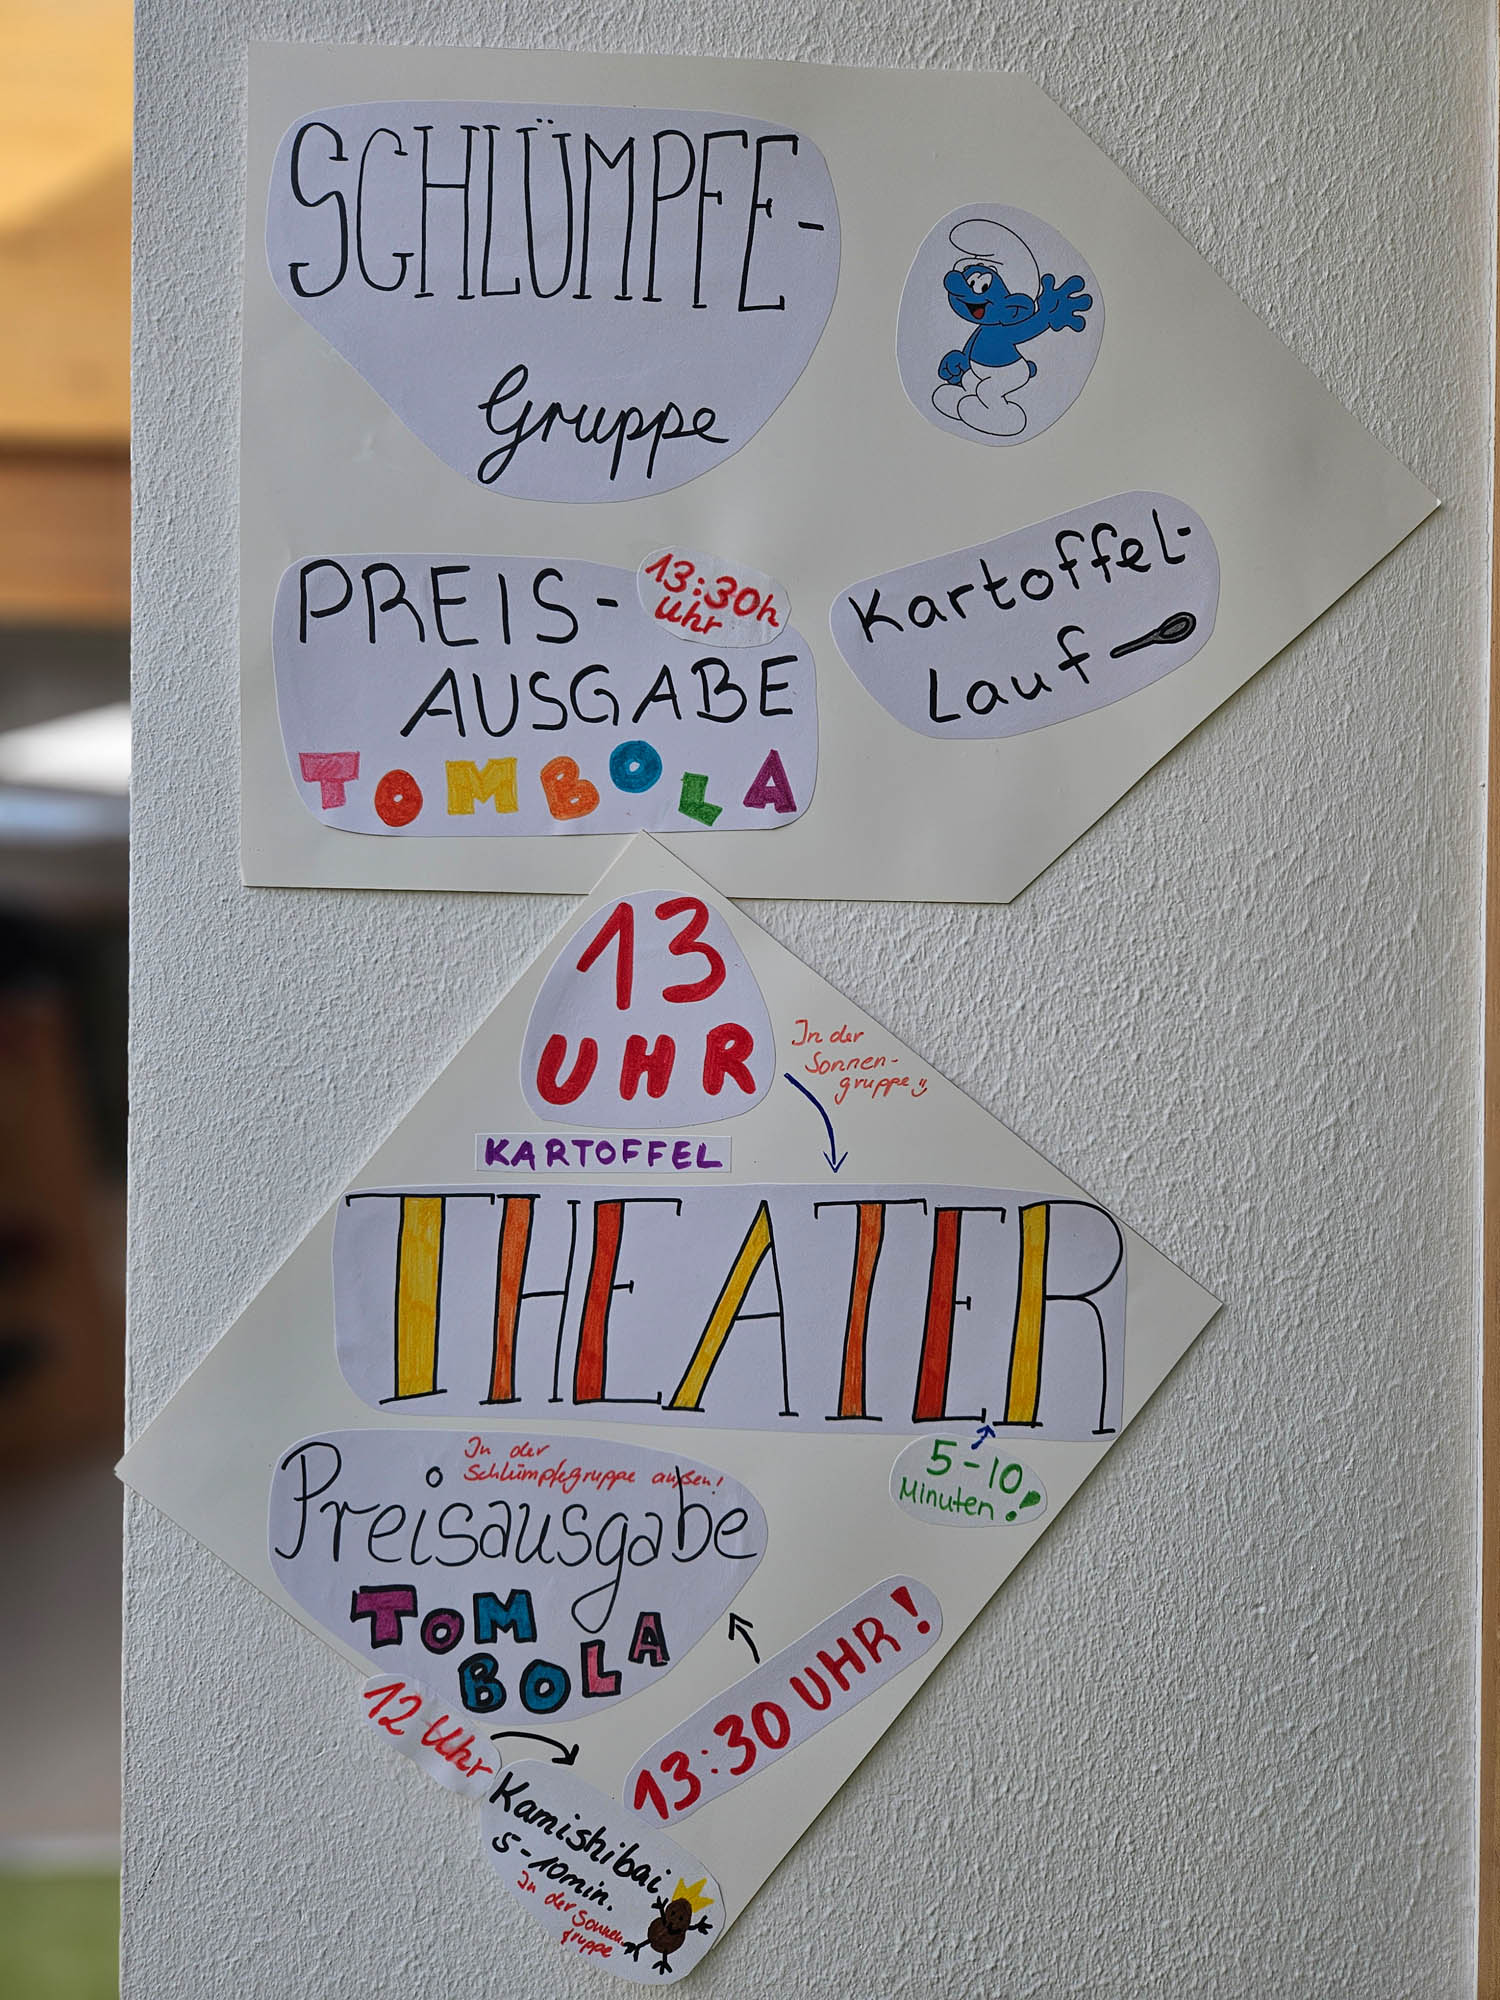 SCHLÜMPFE-
Gruppe
PREIS-
13:30h
Uhr
AUSGABE
TOMBOLA
Kartoffel-
Lauf
13
UHR
In der
Sonnen-
gruppe
KARTOFFEL
THEATER
5-10
Minuten!
In der
Schlümpfegruppe außen!
Preisausgabe
TOM
BOLA
13:30 UHR!
12 Uhr
Kamishibai
5-10min.
In der Sonnen-
gruppe